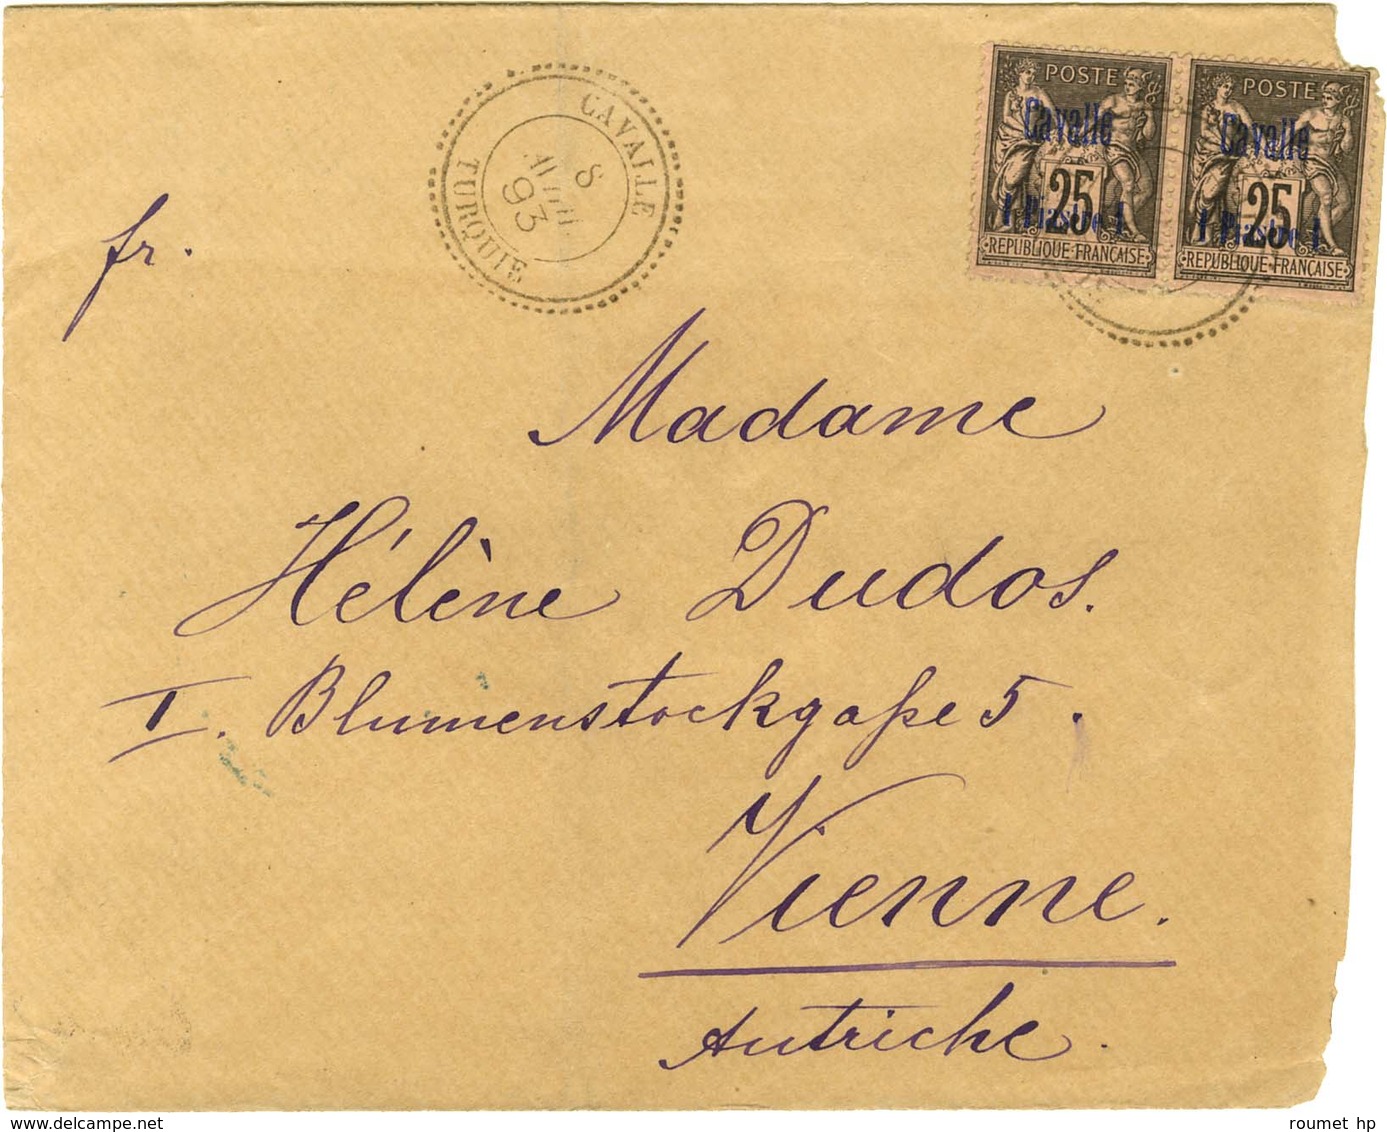 POSTE
Cavalle
25
1 Piastre 1
REPUBLIQUE FRANCAISE
POSTE
Cavalle
25
1 Piastre 1
REPUBLIQUE FRANCAISE
CAVALLE
8
93
TURQUIE
fr.
Madame
Hélène Dudos.
I. Blumenstockgaße 5.
Vienne.
Autriche.
roumet hp